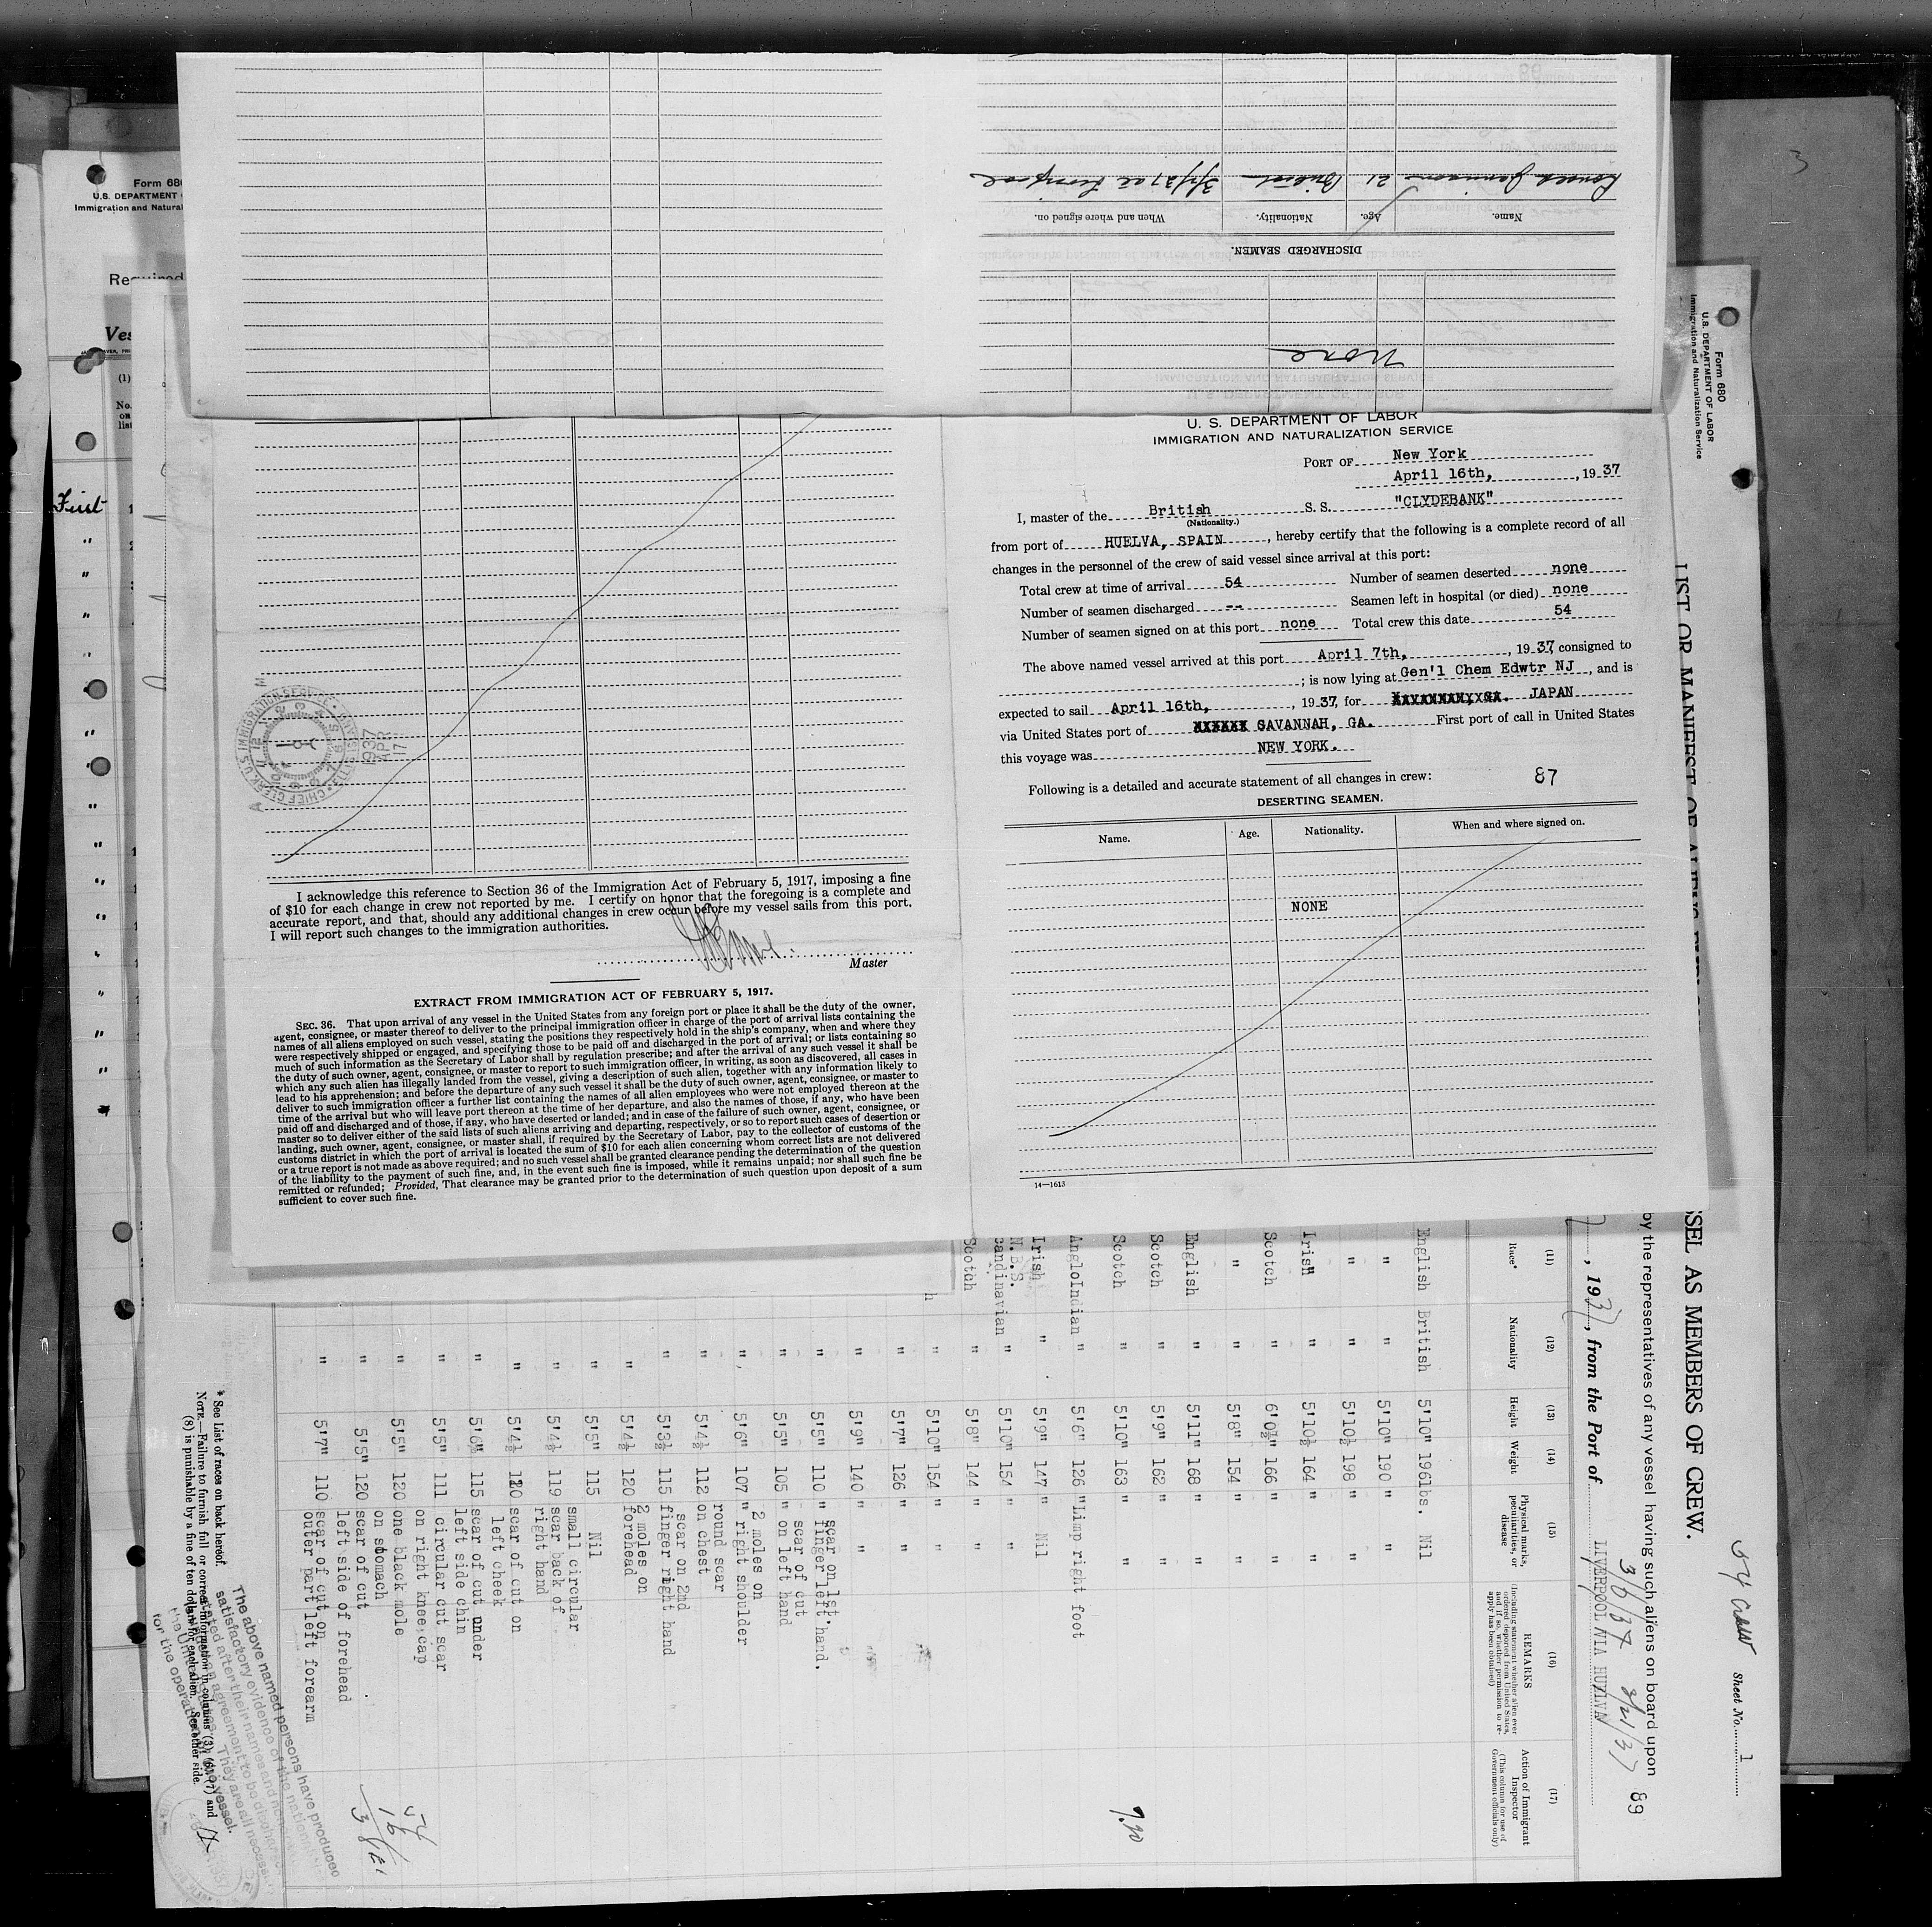 Form 680
U.S. DEPARTMENT
Immigration and Natural
Required
Ves
(1)
No.
on
list
First
DISCHARGED SEAMEN.
Name.
Age.
Nationality.
When and where signed on.
21
none
U. S. DEPARTMENT OF LABOR
IMMIGRATION AND NATURALIZATION SERVICE
PORT OF New York
April 16th, , 19 37
I, master of the British S. S. "CLYDEBANK"
(Nationality.)
from port of HUELVA, SPAIN , hereby certify that the following is a complete record of all
changes in the personnel of the crew of said vessel since arrival at this port:
Total crew at time of arrival 54 Number of seamen deserted none
Number of seamen discharged -- Seamen left in hospital (or died) none
Number of seamen signed on at this port none Total crew this date 54
The above named vessel arrived at this port April 7th, , 19 37 consigned to
; is now lying at Gen'l Chem Edwtr NJ , and is
expected to sail April 16th, , 19 37, for JAPAN
via United States port of SAVANNAH, GA. First port of call in United States
this voyage was NEW YORK.
Following is a detailed and accurate statement of all changes in crew: 87
DESERTING SEAMEN.
Name. Age. Nationality. When and where signed on.
NONE
14—1613
CHIEF CLERK, U.S. IMMIGRATION SERVICE
1937
APR
17
I acknowledge this reference to Section 36 of the Immigration Act of February 5, 1917, imposing a fine
of $10 for each change in crew not reported by me. I certify on honor that the foregoing is a complete and
accurate report, and that, should any additional changes in crew occur before my vessel sails from this port,
I will report such changes to the immigration authorities.
Master
EXTRACT FROM IMMIGRATION ACT OF FEBRUARY 5, 1917.
SEC. 36. That upon arrival of any vessel in the United States from any foreign port or place it shall be the duty of the owner,
agent, consignee, or master thereof to deliver to the principal immigration officer in charge of the port of arrival lists containing the
names of all aliens employed on such vessel, stating the positions they respectively hold in the ship's company, when and where they
were respectively shipped or engaged, and specifying those to be paid off and discharged in the port of arrival; or lists containing so
much of such information as the Secretary of Labor shall by regulation prescribe; and after the arrival of any such vessel it shall be
the duty of such owner, agent, consignee, or master to report to such immigration officer, in writing, as soon as discovered, all cases in
which any such alien has illegally landed from the vessel, giving a description of such alien, together with any information likely to
lead to his apprehension; and before the departure of any such vessel it shall be the duty of such owner, agent, consignee, or master to
deliver to such immigration officer a further list containing the names of all alien employees who were not employed thereon at the
time of the arrival but who will leave port thereon at the time of her departure, and also the names of those, if any, who have been
paid off and discharged and of those, if any, who have deserted or landed; and in case of the failure of such owner, agent, consignee, or
master so to deliver either of the said lists of such aliens arriving and departing, respectively, or so to report such cases of desertion or
landing, such owner, agent, consignee, or master shall, if required by the Secretary of Labor, pay to the collector of customs of the
customs district in which the port of arrival is located the sum of $10 for each alien concerning whom correct lists are not delivered
or a true report is not made as above required; and no such vessel shall be granted clearance pending the determination of the question
of the liability to the payment of such fine, and, in the event such fine is imposed, while it remains unpaid; nor shall such fine be
remitted or refunded; Provided, That clearance may be granted prior to the determination of such question upon deposit of a sum
sufficient to cover such fine.
Form 680
U.S. DEPARTMENT OF LABOR
Immigration and Naturalization Service
Sheet No. 1
54 crew
LIST OR MANIFEST OF ALIENS
SSEL AS MEMBERS OF CREW.
by the representatives of any vessel having such aliens on board upon
89
3/6/37 3/21/37
, 193 , from the Port of LIVERPOOL VIA HUELVA
(11) Race* (12) Nationality (13) Height (14) Weight (15) Physical marks, peculiarities, or disease
(16) REMARKS (Including statement whether alien ever ordered deported from United States, and if so, whether permission to re-apply has been obtained)
(17) Action of Immigrant Inspector (This column for use of Government officials only)
English British 5'10" 196lbs. Nil
" " 5'10" 190 " "
" " 5'10½ 198 " "
Irish " 5'10½ 164 " "
Scotch " 6'0½" 166 " "
" " 5'8" 154 " "
English " 5'11" 168 " "
Scotch " 5'9" 162 " "
Scotch " 5'10" 163 " "
7.20
AngloIndian " 5'6" 126 " Limp right foot
Irish " 5'9" 147 " Nil
N.B.S.
Scandinavian " 5'10" 154 " "
Scotch " 5'8" 144 " "
h " 5'10" 154 " "
" 5'7" 126 " "
" 5'9" 140 " "
" 5'5" 110 " scar on 1st. finger left hand.
" 5'5" 105 " scar of cut on left hand
" 5'6" 107 " 2 moles on right shoulder
" 5'4½ 112 round scar on chest
" 5'3½ 115 scar on 2nd finger right hand
" 5'4½ 120 2 moles on forehead
" 5'5" 115 Nil
" 5'4½ 119 small circular scar back of right hand
" 5'4½ 120 scar of cut on left cheek
" 5'6½ 115 scar of cut under left side chin
" 5'5" 111 circular cut scar on right knee cap
" 5'5" 120 one black mole on stomach
" 5'5" 120 scar of cut left side of forehead
" 5'7" 110 scar of cut on outer part left forearm
54
16
3
* See List of races on back hereof.
NOTE.—Failure to furnish full or correct information in columns (3), (6), (7) and
(8) is punishable by a fine of ten dollars for each alien. See other side.
The above named persons have produced
satisfactory evidence of the